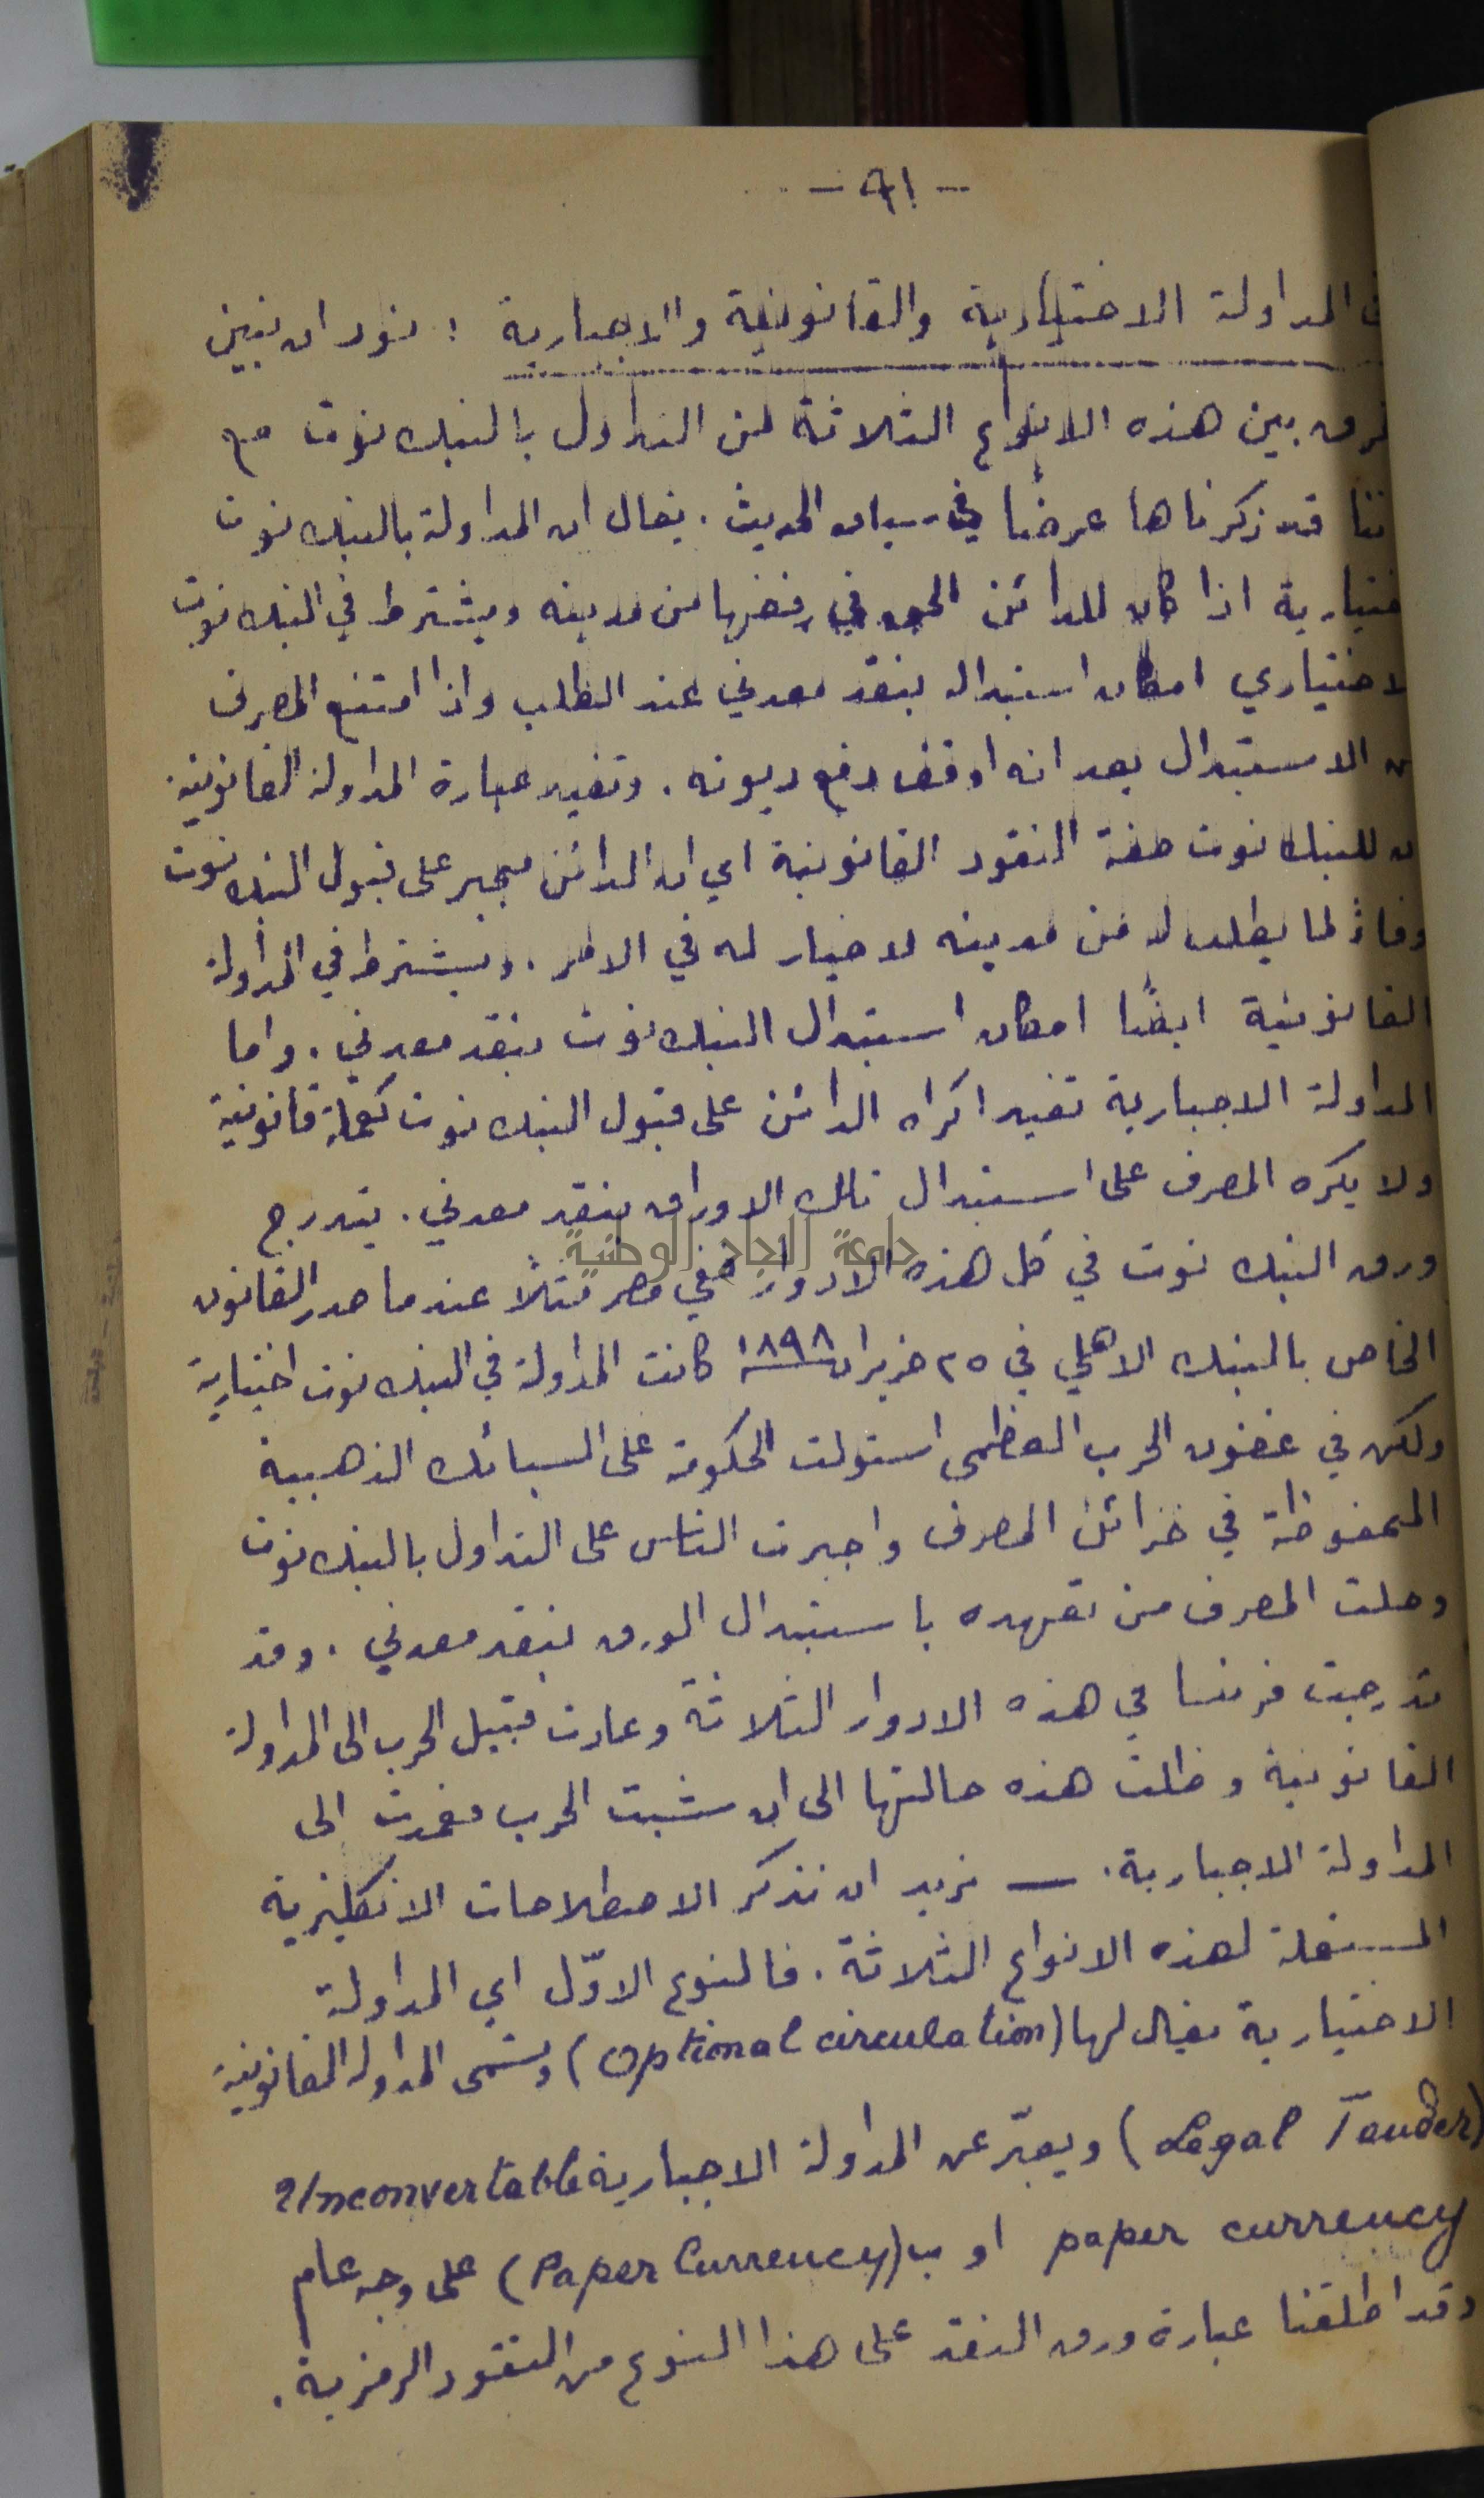 - ٩١ -
المداولة الاختيارية والقانونية والاجبارية : نود ان نبين
بين هذه الانواع الثلاثة من التداول بالبنك نوت مع
قد ذكرناها عرضًا في سياق الحديث . يقال ان المداولة بالبنك نوت
ختيارية اذا كان للدائن الحق في رفضها من مدينه ويشترط في البنك نوت
لاختياري امكان استبداله بنقد معدني عند الطلب واذا امتنع المصرف
الاستبدال يعد انه اوقف دفع ديونه . وتفيد عبارة المداولة القانونية
للبنك نوت صفة النقود القانونية اي ان الدائن مجبر على قبول البنك نوت
وفاءً لما يطلب له من مدينه لا خيار له في الامر . ويشترط في المداولة
القانونية ايضًا امكان استبدال البنك نوت بنقد معدني . واما
المداولة الاجبارية تفيد اكراه الدائن على قبول البنك نوت كعملة قانونية
ولا يكره المصرف على استبدال تلك الاوراق بنقد معدني . يتدرج
جامعة النجاح الوطنية
ورق البنك نوت في كل هذه الادوار ففي مصر مثلاً عندما صدر القانون
الخاص بالبنك الاهلي في ٢٥ حزيران ١٨٩٨ كانت المداولة في البنك نوت اختيارية
ولكن في غضون الحرب العظمى استولت الحكومة على السبائك الذهبية
المحفوظة في خزائن المصرف واجبرت الناس على التداول بالبنك نوت
وحلت المصرف من تعهده باستبدال الورق بنقد معدني . وقد
تدرجت فرنسا في هذه الادوار الثلاثة وعادت قبيل الحرب الى المداولة
القانونية وظلت هذه حالتها الى ان شبت الحرب فعمدت الى
المداولة الاجبارية . — نريد ان نذكر الاصطلاحات الانكليزية
المستعملة لهذه الانواع الثلاثة . فالنوع الاوّل اي المداولة
الاختيارية يقال لها (Optional circulation) وتسمى المداولة القانونية
(Legal Tauder) ويعبّر عن المداولة الاجبارية Unconvertable
paper currency او ب (Paper Currency) على وجه عام
وقد اطلقنا عبارة ورق النقد على هذا النوع من النقود الرمزية .